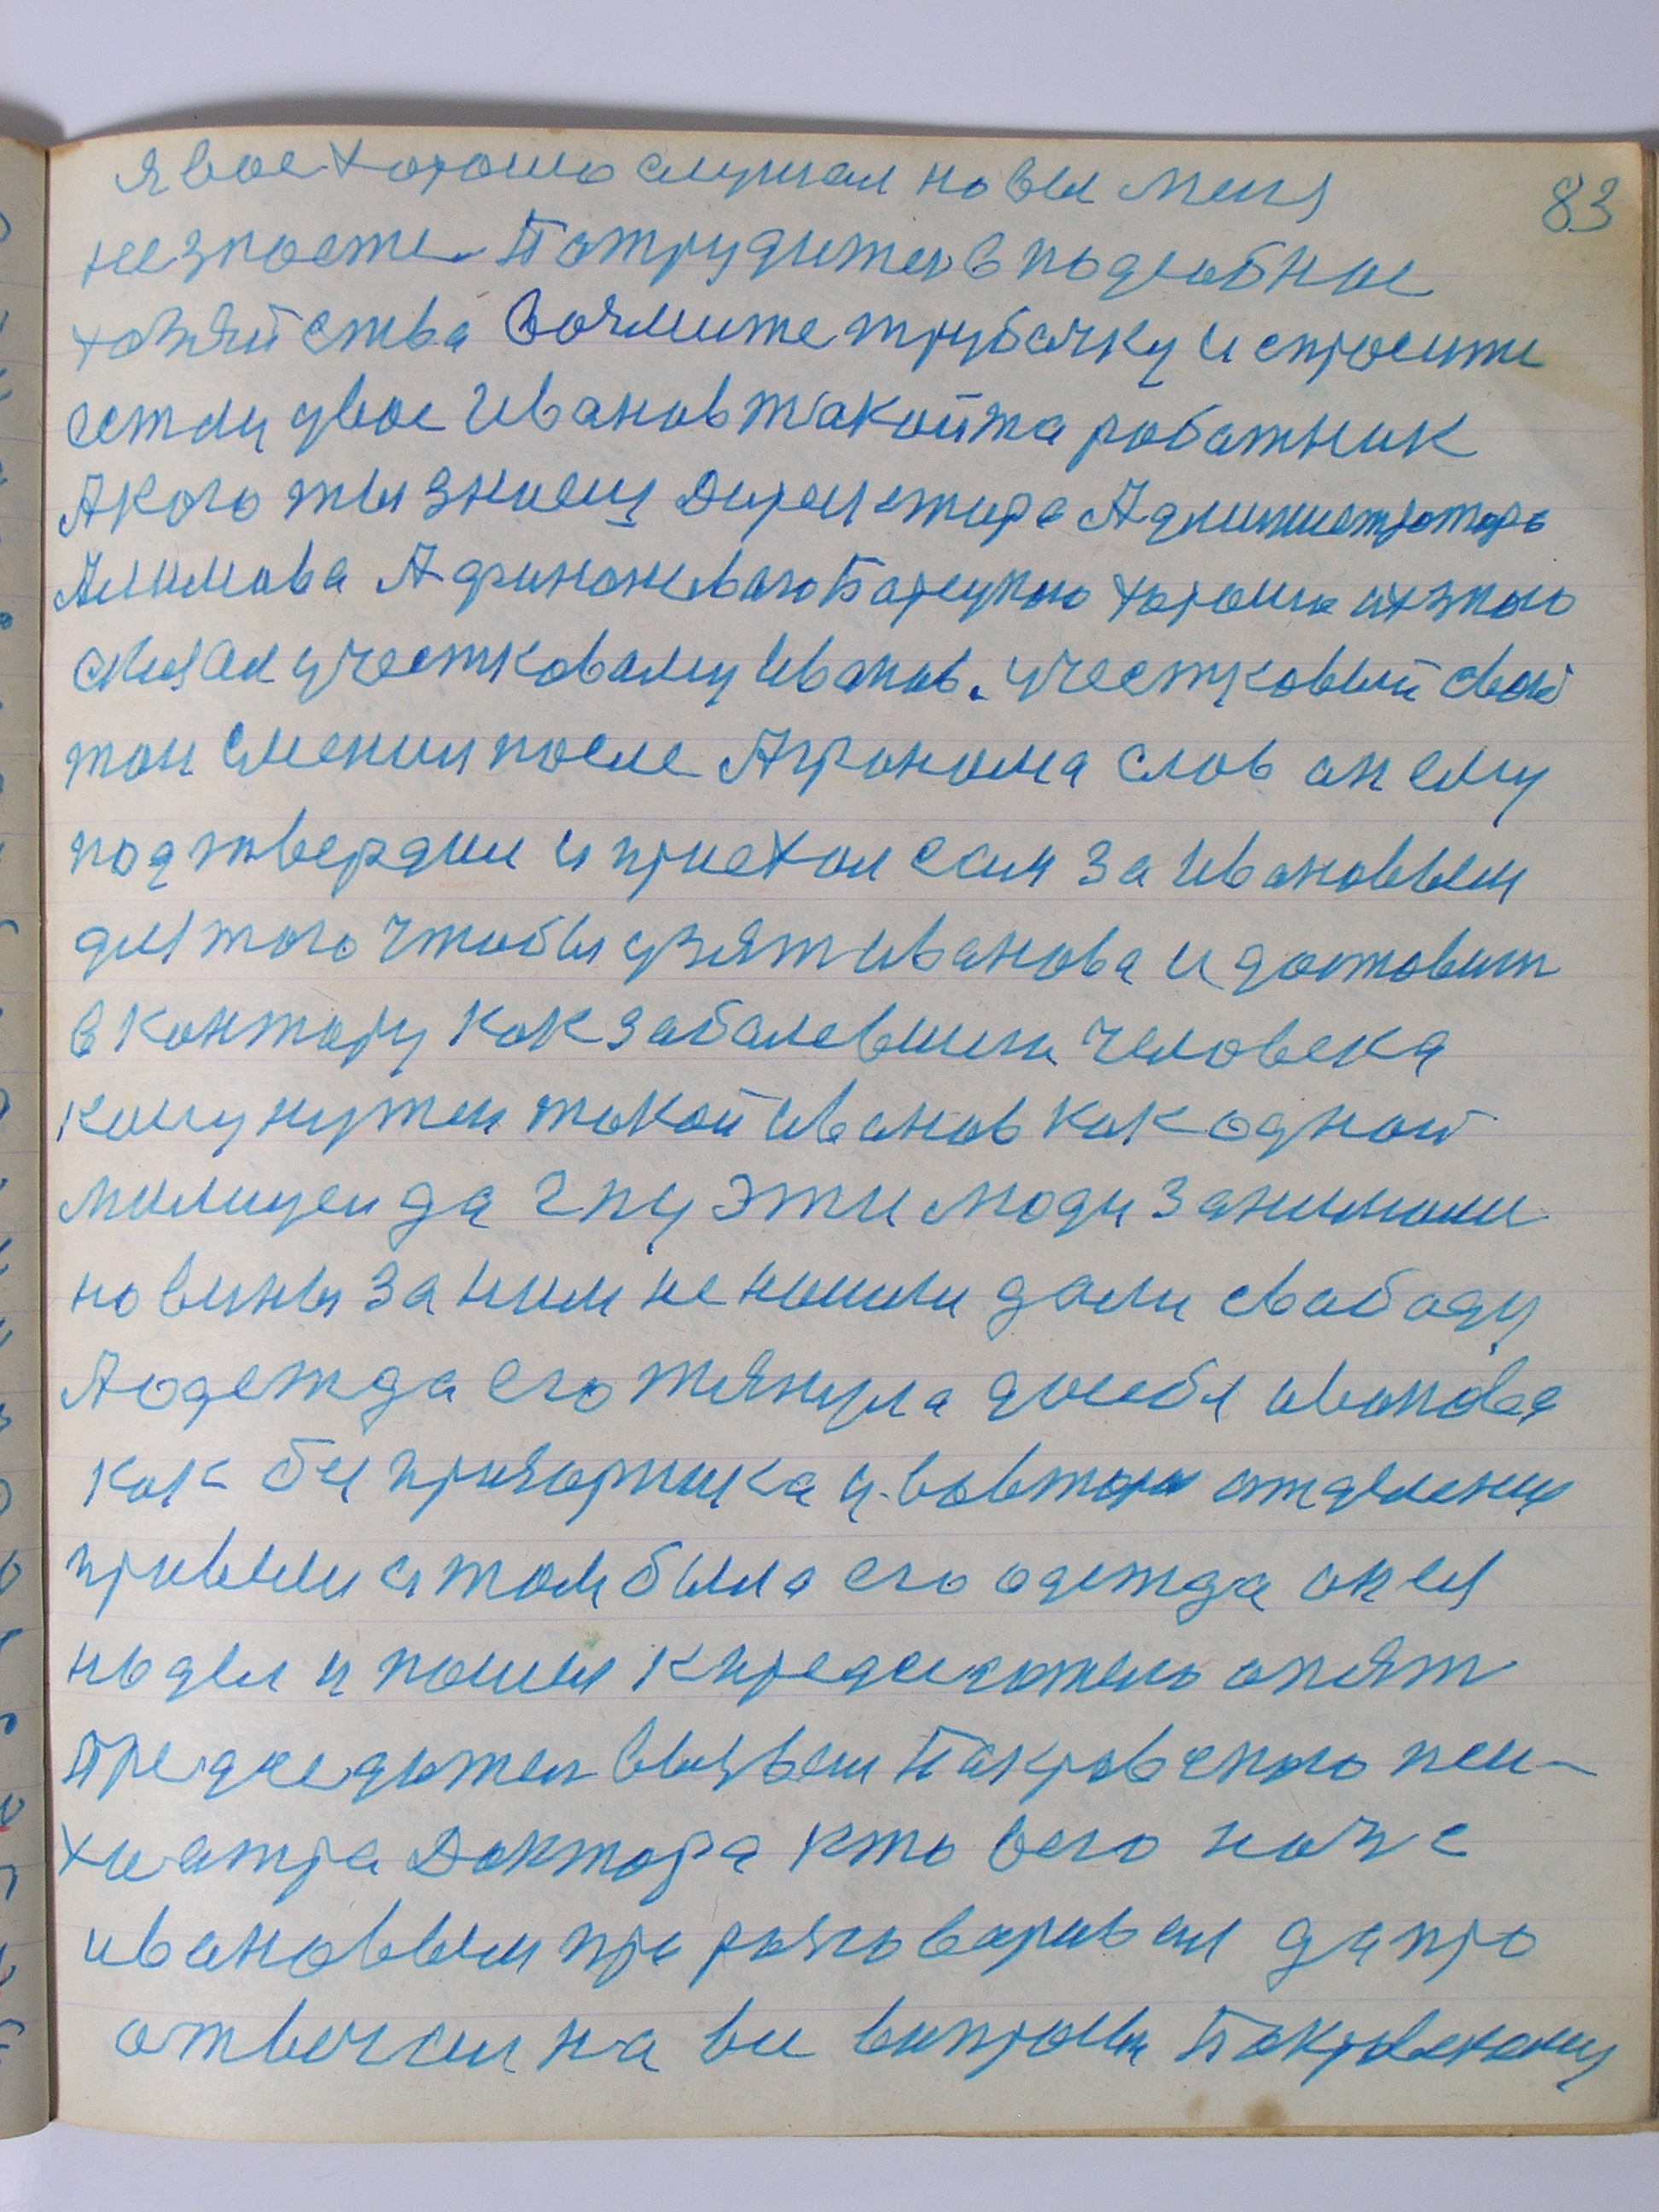 83
я вас хорошо слушал но вы меня
незнаете. Патрудитесь в подсобное
хозяйства возмите трубачку и спросите
естли увас Иванов такойта работник
А кого ты знаеш Диреиктира Администратора
Алимова Афинаневаго Барецкого хорошо их знаю
сказал учестковаму Иванов. учестковый свой
тон сменил после Агранома слов он ему
подтвердил и приехал сам за Ивановым
для того чтобы узять Иванова и доставит
в контору как забалевшиго человека
кому нужен такой Иванов как одной
милиции да гпу эти люди занимали
но вины за ним не нашли дали свабоду
А одежда его тянула дасебя иванова
как бы призорника и вовторо отделения
пришли и там была его одежда он ея
надел и пошел к председателю опять
председатель вызвал Пакровского пси-
хиатра Доктора кто всего ночь с
ивановым про разговаривал да про
отвечал на все вапросы Пакровскому